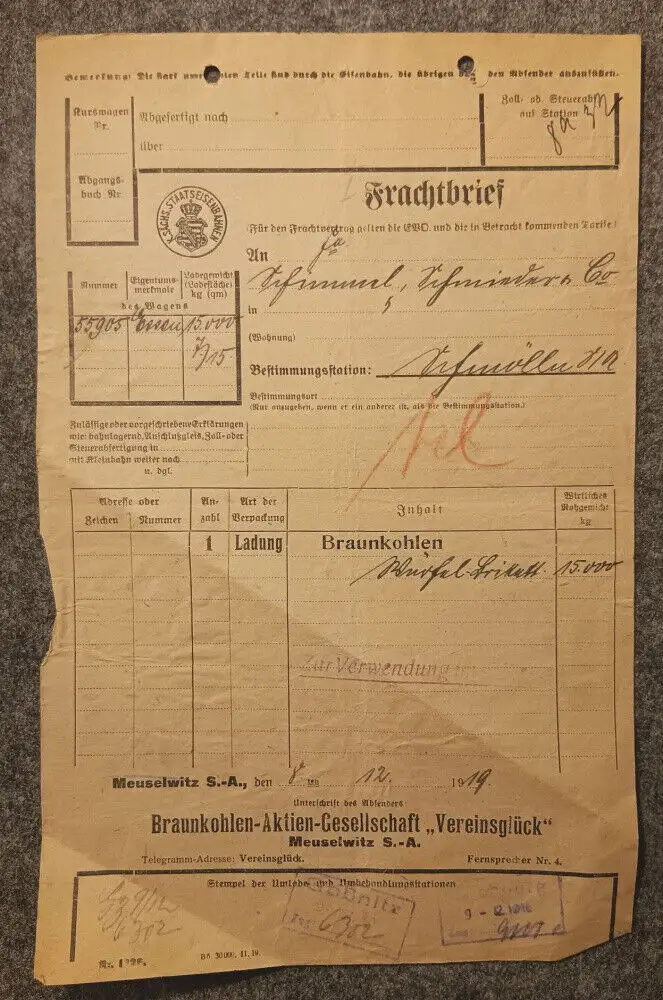 Bemerkung: Die stark umrahmten Teile sind durch die Eisenbahn, die übrigen den Absender auszufüllen.
Kurswagen
Nr.
Abgefertigt nach
über
Zoll- od. Steuerabf.
auf Station
Abgangs-
buch Nr.
K. SÄCHS. STAATSEISENBAHNEN
Frachtbrief
(Für den Frachtvertrag gelten die EVO. und die in Betracht kommenden Tarife.)
An Fa
Schimmel, Schmieder & Co
in
(Wohnung)
Bestimmungsstation: Schmölln S/A
Bestimmungsort
(Nur anzugeben, wenn er ein anderer ist, als die Bestimmungsstation.)
Nummer Eigentums-merkmale Ladegewicht (Ladefläche) kg (qm)
des Wagens
55905 Essen 15.000
Zulässige oder vorgeschriebene Erklärungen
wie: bahnlagernd, Anschlußgleis, Zoll- oder
Steuerabfertigung in
mit Kleinbahn weiter nach
u. dgl.
Adresse oder
Zeichen Nummer
An-zahl
Art der Verpackung
Inhalt
Wirkliches Rohgewicht kg
1 Ladung Braunkohlen
Würfel-Brikett 15.000
Zur Verwendung
Meuselwitz S.-A., den 8 ten 12. 1919.
Unterschrift des Absenders
Braunkohlen-Aktien-Gesellschaft „Vereinsglück"
Meuselwitz S.-A.
Telegramm-Adresse: Vereinsglück. Fernsprecher Nr. 4.
Stempel der Umlade- und Umbehandlungsstationen
9/12
6302
Gößnitz
6302
Bö. 30000. 11. 19.